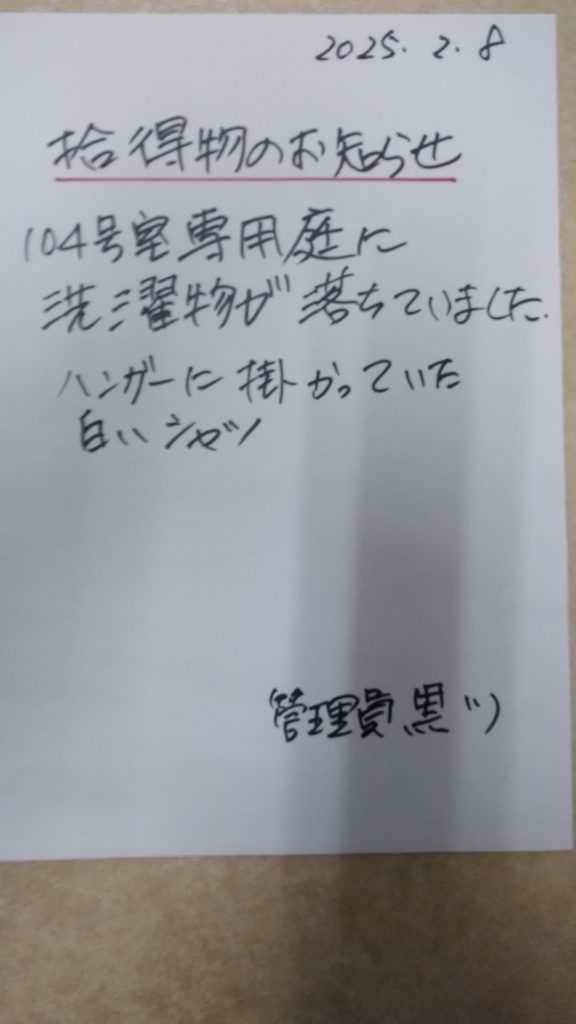 2025.2.8
拾得物のお知らせ
104号室専用庭に
洗濯物が落ちていました.
ハンガーに掛かっていた
白いシャツ
管理員 黒